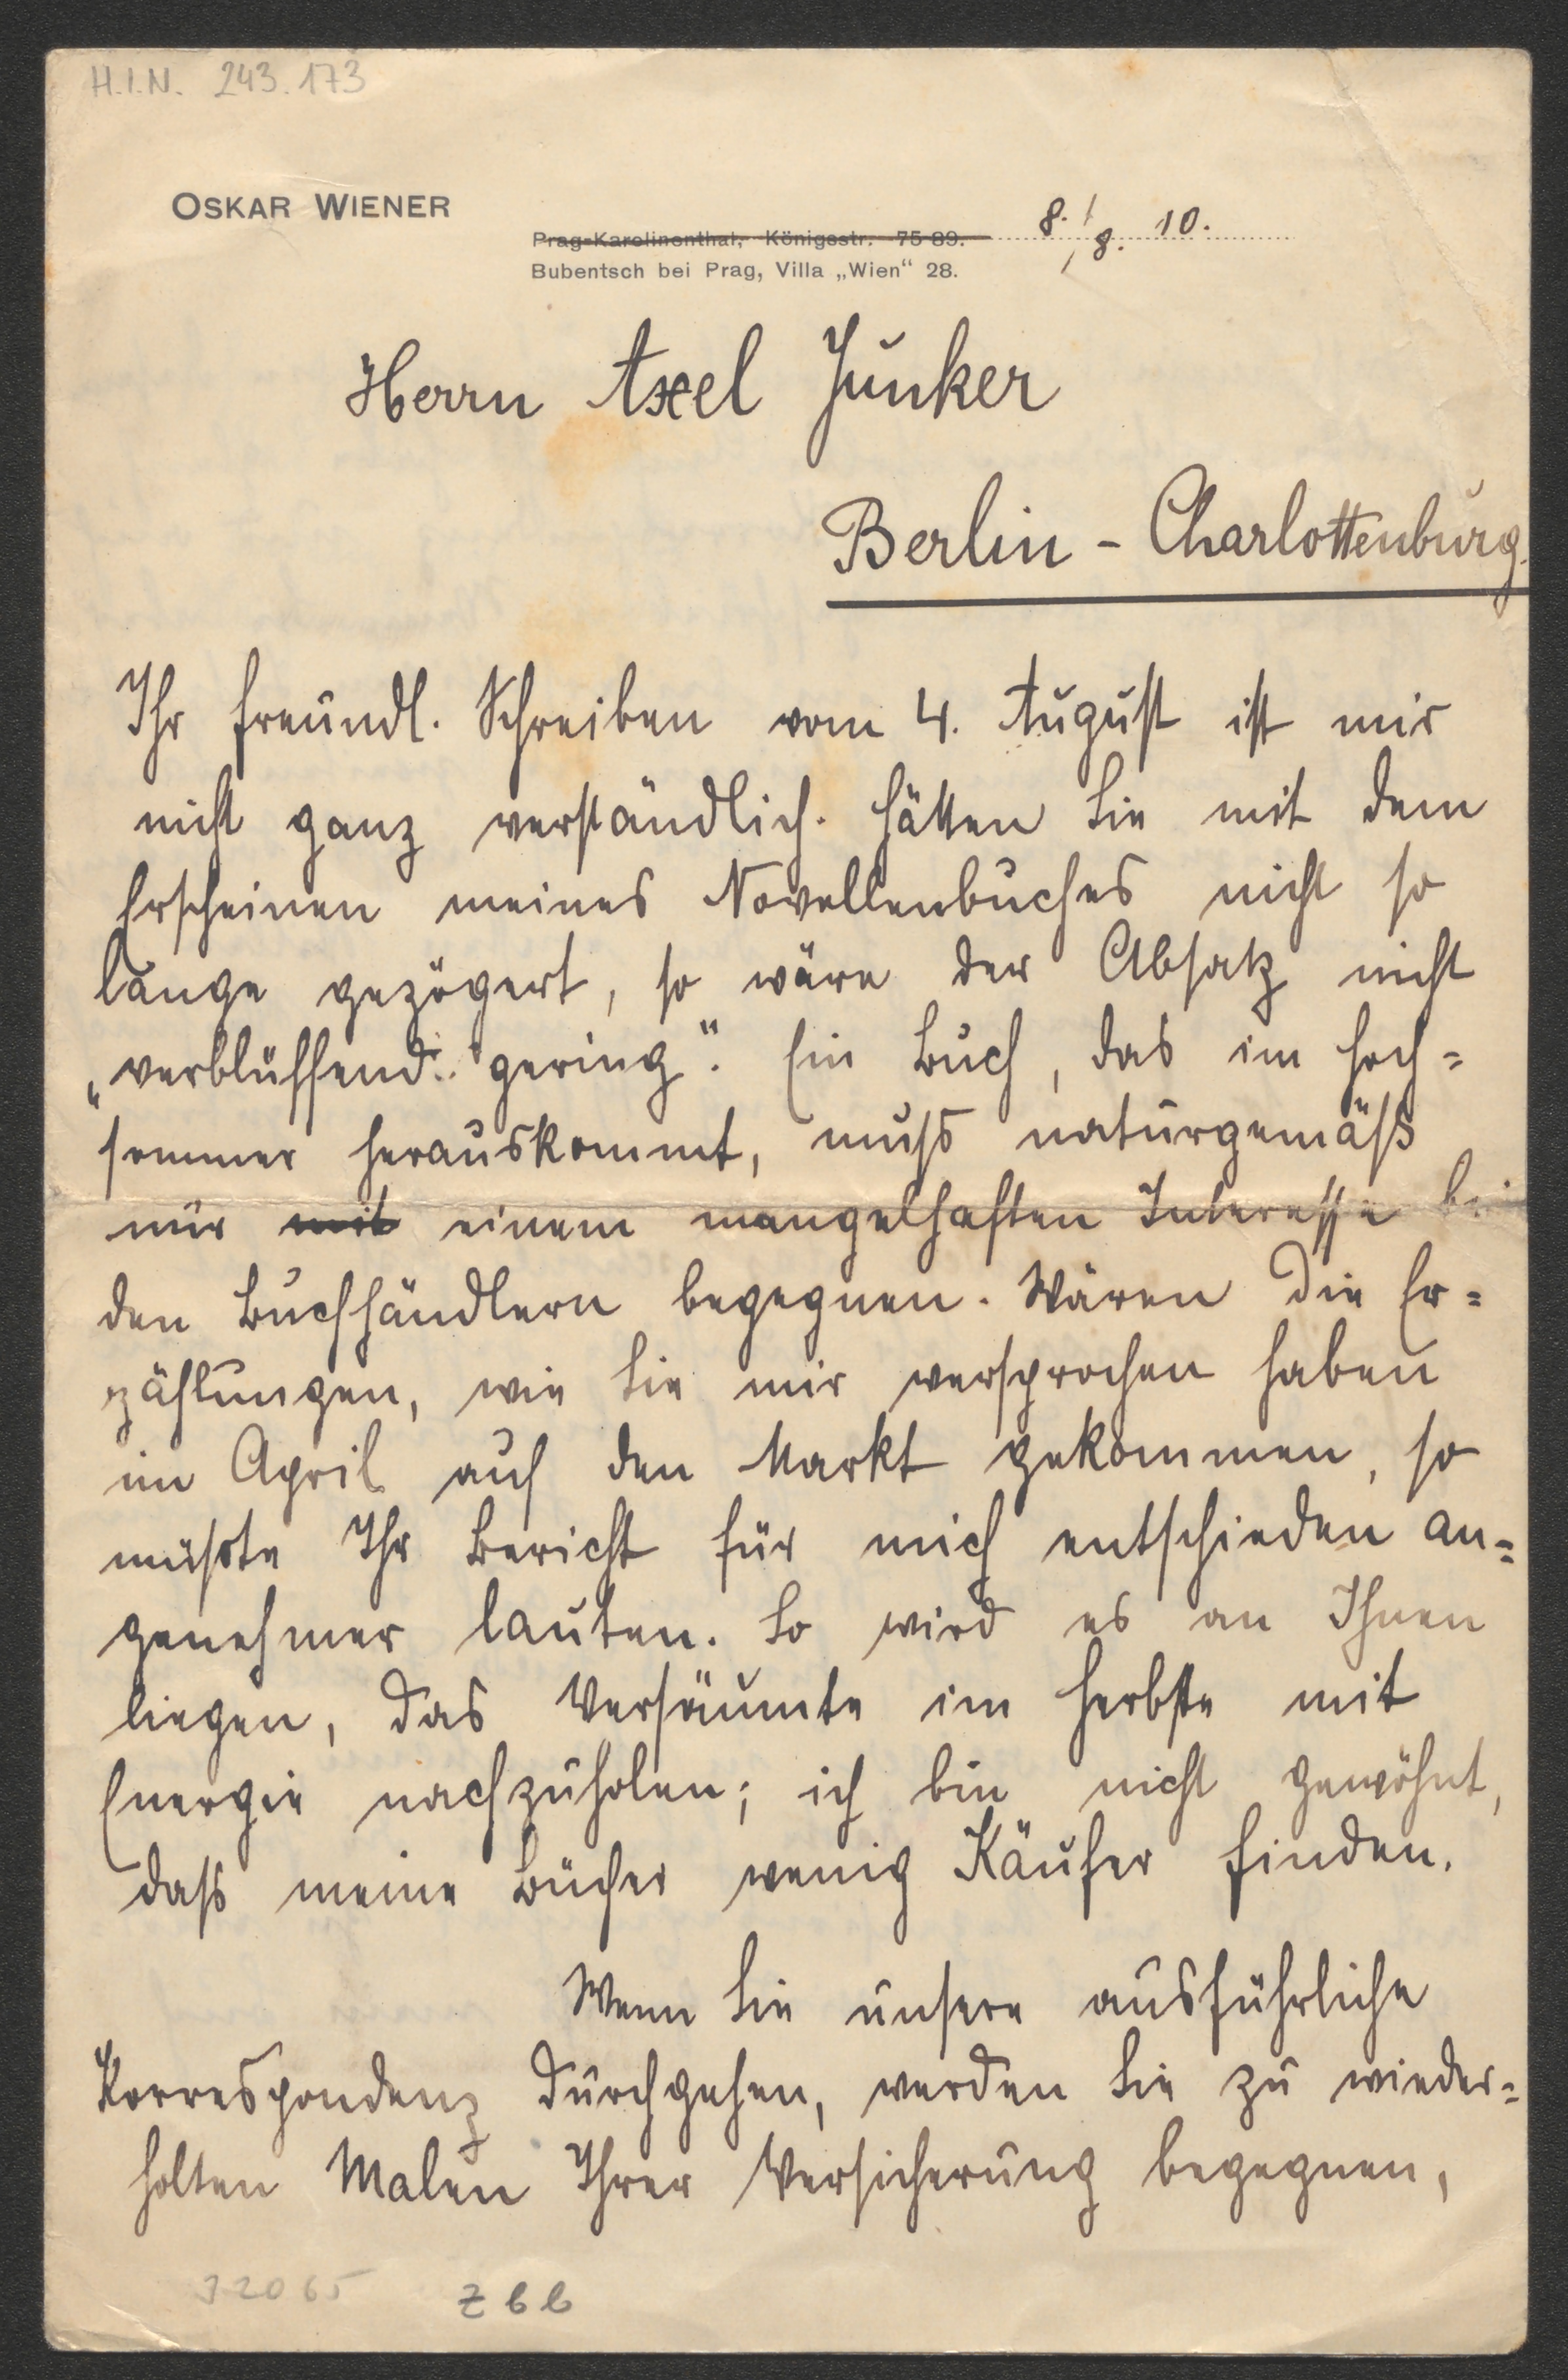 H.I.N. 243.173
OSKAR WIENER
Prag-Karolinenthal, Königsstr. 75-89.
8./8. 10.
Bubentsch bei Prag, Villa „Wien“ 28.
Herrn Axel Junker
Berlin - Charlottenburg.
Ihr freundl. Schreiben vom 4. August ist mir
nicht ganz verständlich. Hätten Sie mit dem
Erscheinen meines Novellenbuches nicht so
lange gezögert, so wäre der Absatz nicht
„verblüffend gering“. Ein Buch, das im Hoch=
sommer herauskommt, muß naturgemäß
nur mit einem mangelhaften Interesse bei
den Buchhändlern begegnen. Wären die Er=
zählungen, wie Sie mir versprochen haben
im April auf den Markt gekommen, so
müßte Ihr Bericht für mich entschieden an=
genehmer lauten. So wird es an Ihnen
liegen, das Versäumte im Herbste mit
Energie nachzuholen; ich bin nicht gewöhnt,
daß meine Bücher wenig Käufer finden.
Wenn Sie unsere ausführliche
Korrespondenz durchgehen, werden Sie zu wieder=
holten Malen Ihrer Versicherung begegnen,
J 2065 Zbb